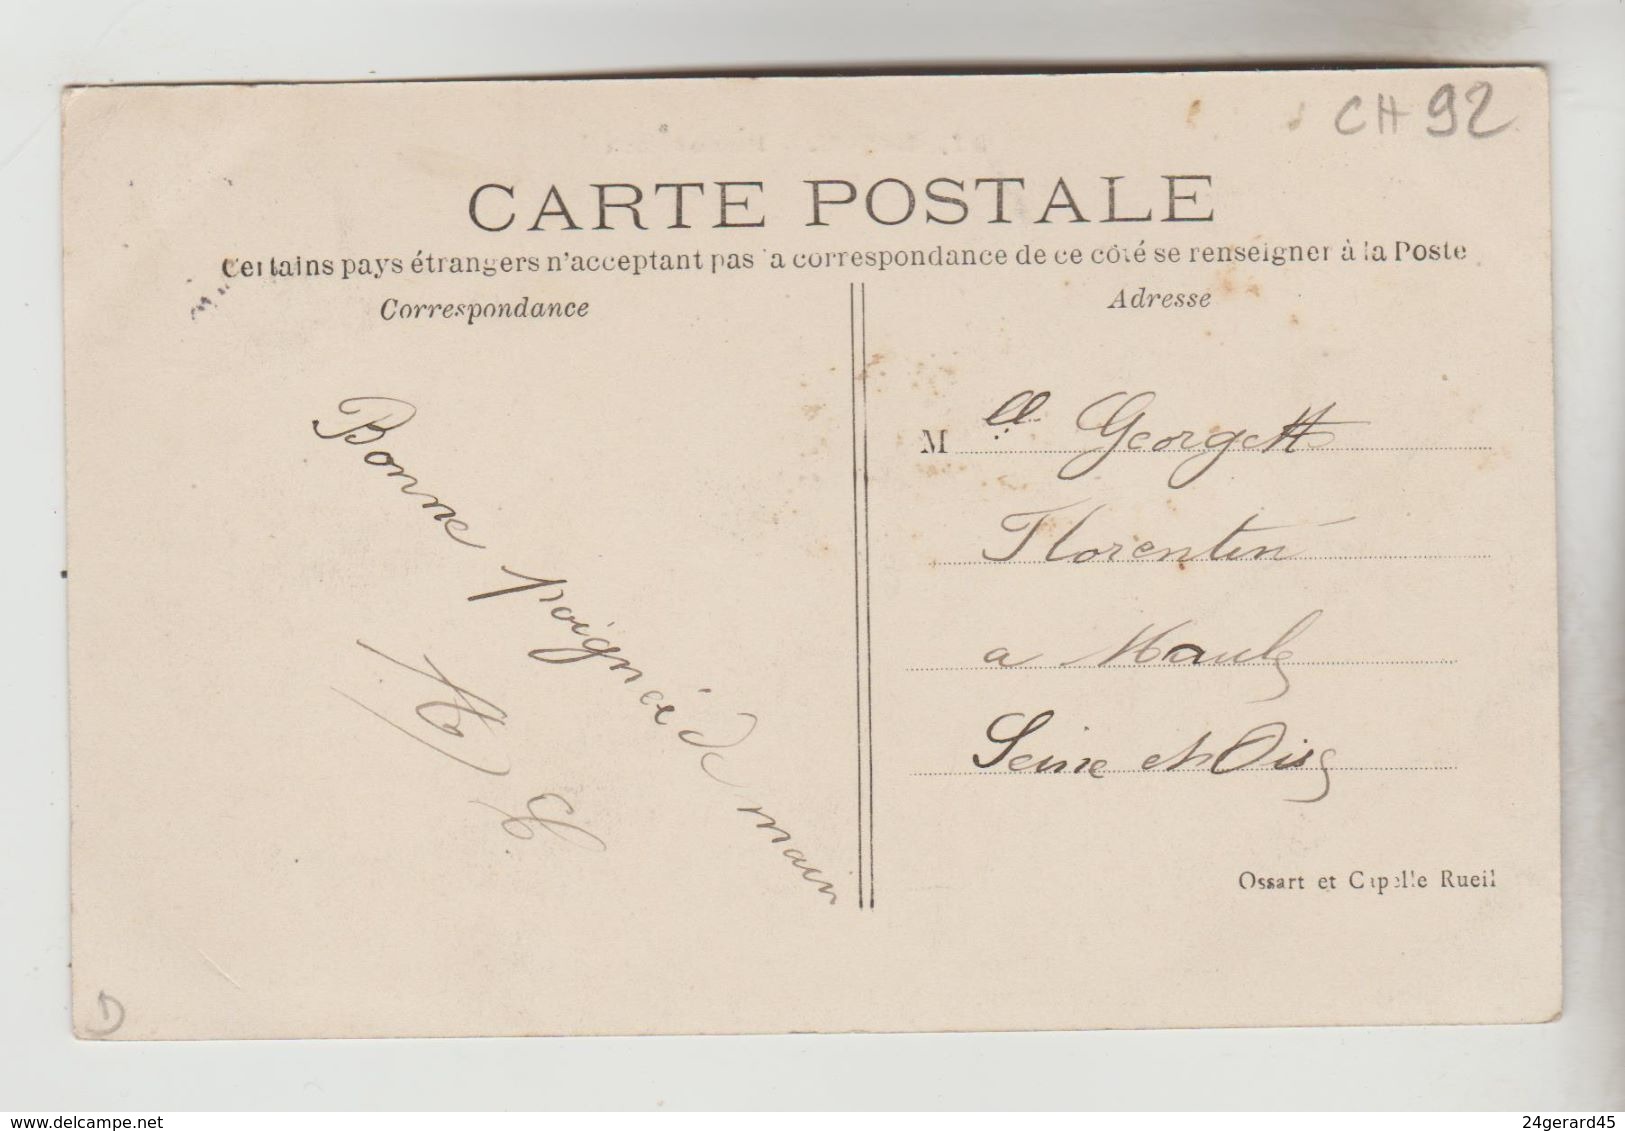 CH 92
CARTE POSTALE
Certains pays étrangers n'acceptant pas la correspondance de ce côté se renseigner à la Poste
Correspondance
Bonne poignée de main
Adresse
M lle Georgette
Florentin
a Maule
Seine et Oise
Ossart et Capelle Rueil
D
www.delcampe.net
24gerard45